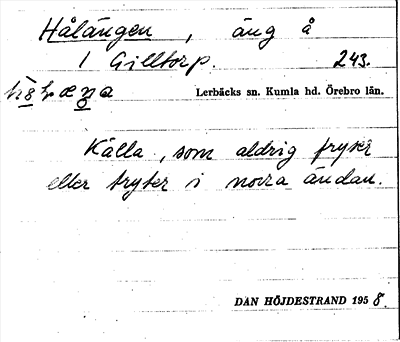 Hålängen, äng å
1 Gilltorp. 243.
Lerbäcks sn. Kumla hd. Örebro län.
Källa, som aldrig fryser
eller tryter i norra ändan.
DAN HÖJDESTRAND 1958.